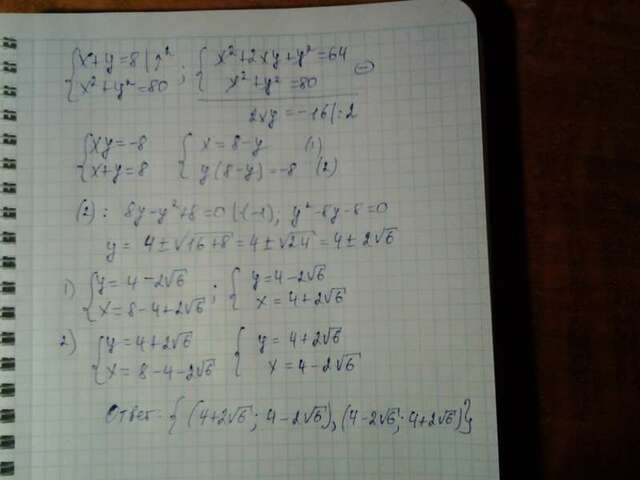 {x+y=8 | ()² ; {x²+2xy+y²=64
{x²+y²=80   x²+y²=80 ⊖
2xy=-16 |:2
{xy=-8   {x=8-y (1)
{x+y=8   {y(8-y)=-8 (2)
(2): 8y-y²+8=0 |·(-1); y²-8y-8=0
y=4±√16+8=4±√24=4±2√6
1) {y=4-2√6 ; {y=4-2√6
{x=8-4+2√6   {x=4+2√6
2) {y=4+2√6   {y=4+2√6
{x=8-4-2√6   {x=4-2√6
Ответ: {(4+2√6; 4-2√6), (4-2√6; 4+2√6)}